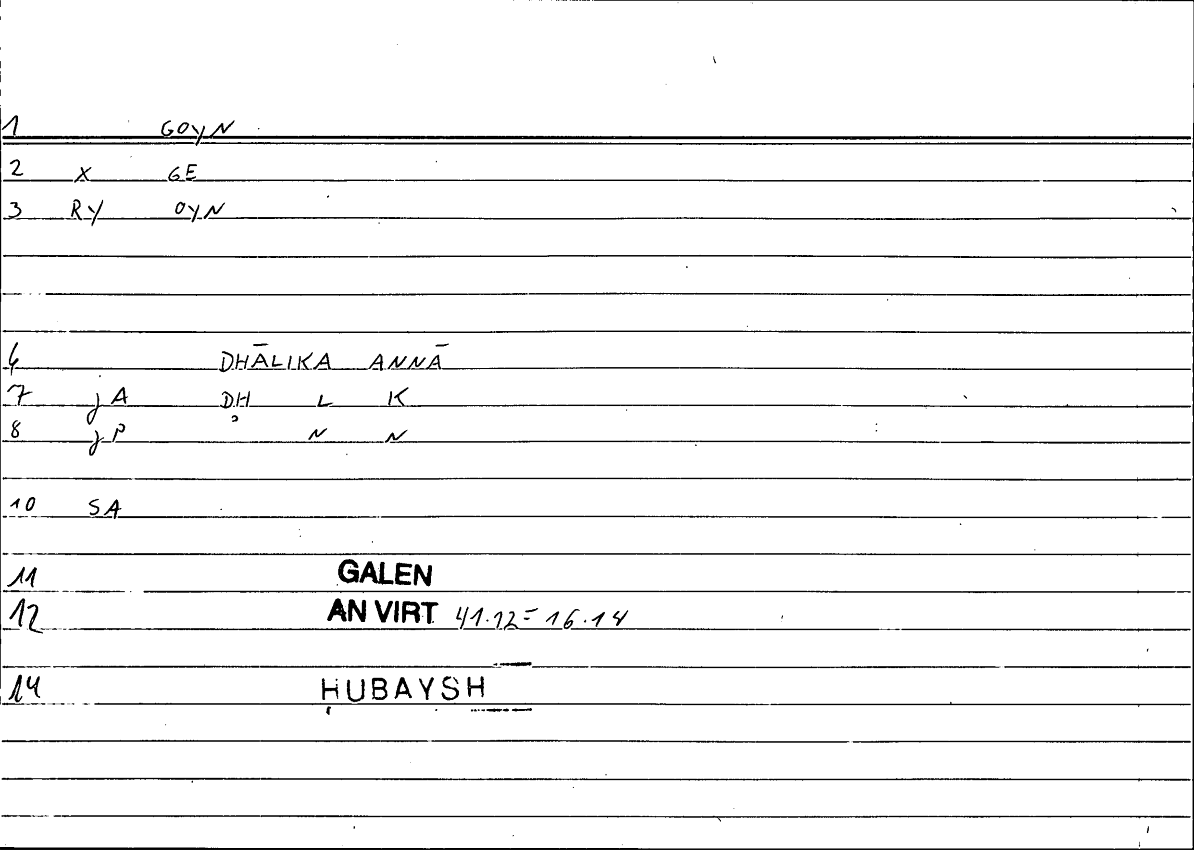 1 GOYN
2 X GE
3 RY OYN
6 DHĀLIKA ANNĀ
7 jA ḌH L K
8 jP N N
10 SA
11 GALEN
12 AN VIRT 41.12=16.14
14 ḤUBAYSH